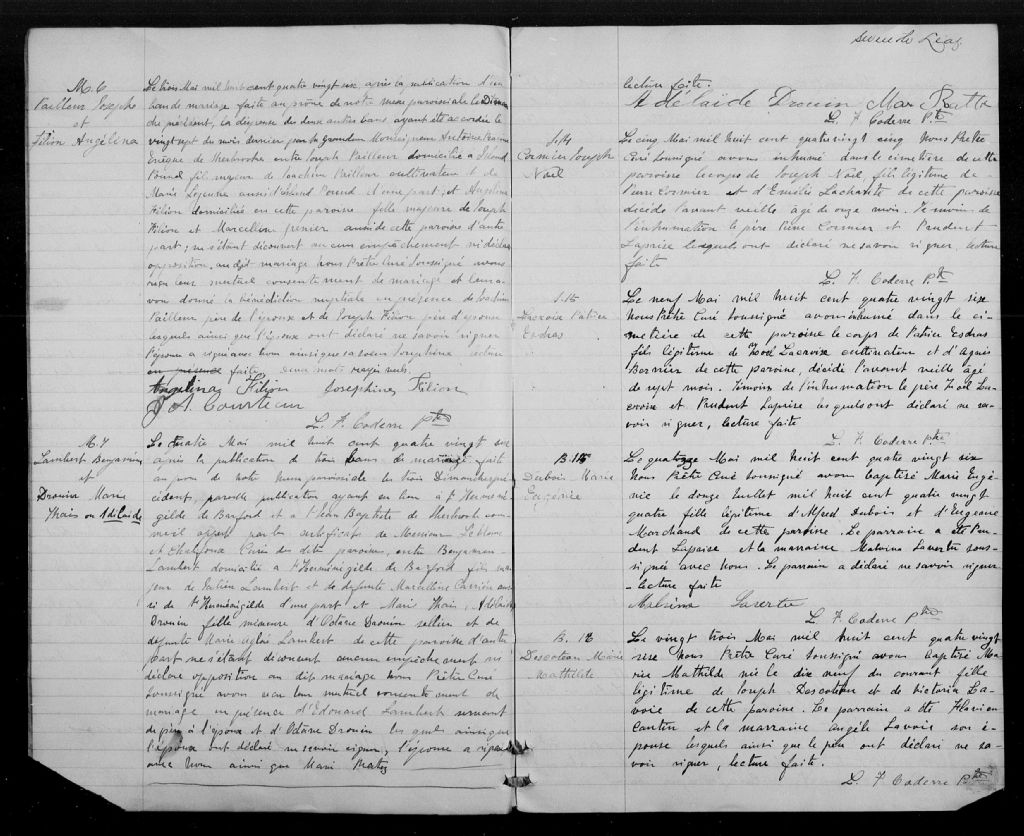 M. 6
Pailleur Joseph
et
Filion Angélina
Le trois Mai mil huit cent quatre vingt six après la publication d'un
ban de mariage faite au prône de notre messe paroissiale le Dimanche
du présent, la dispense des deux autres bans ayant été accordée le
vingt sept du mois dernier par sa grandeur Monseigneur Antoine Racine
Evêque de Sherbrooke entre Joseph Pailleur domicilié à Island
Pound fils majeur de Joachim Pailleur cultivateur et de
Marie aussi d'Island Pound d'une part; et Angelina
Filion domiciliée en cette paroisse fille majeure de Joseph
Filion et Marcelline Grenier aussi de cette paroisse d'autre
part; ne s'étant découvert aucun empêchement ni déclaré
opposition au dit mariage Nous Prêtre Curé soussigné avons
reçu leur mutuel consentement de mariage et leur a-
vons donné la bénédiction nuptiale en présence de Joachim
Pailleur père de l'époux et de Joseph Filion père d'épouse
lesquels ainsi que l'époux ont déclaré ne savoir signer
l'épouse a signé avec nous ainsi que sa soeur Josephine lecture
en présence faite. deux mots rayés nuls.
Angelina Filion Josephine Filion
J A. Courteau
L. F. Coderre Ptre
M. 7
Lambert Benjamin
et
Drouin Marie
Thais ou Adelaide
Le quatre Mai mil huit cent quatre vingt six
après la publication de trois bans de mariage faite
au prone de notre messe paroissiale les trois Dimanches pré
cédent, pareille publication ayant eu lieu à St Herméné
gilde de Barford et à St Jean Baptiste de Sherbrooke com-
me il appert par les certificats de Messieurs Leblanc
et Chalifoux Curés des dites paroisses, entre Benjamin
Lambert domicilié à St Herménégilde de Barford fils ma-
jeur de Lambert et de defunte Marcelline Carrier aus
si de St Herménégilde d'une part et Marie Thais, Adélaide
Drouin fille mineure d'Odaire Drouin sellier et de
défunte Marie Aglaé Lambert de cette paroisse d'autre
part ne s'étant découvert aucun empêchement ni
déclaré opposition au dit mariage Nous Prêtre Curé
soussigné avons reçu leur mutuel consentement de
mariage en présence d'Edouard Lambert servant
de père à l'époux et d'Odaire Drouin les quels ainsi que
l'époux ont déclaré ne savoir signer, l'épouse a signé
avec nous ainsi que Marie
lecture faite.
Adélaide Drouin Mar
L. F. Coderre Ptre
S. 14
Cormier Joseph
Noël
Le cinq Mai mil huit cent quatre vingt cinq Nous Prêtre
Curé soussigné avons inhumé dans le cimetière de cette
paroisse le corps de Joseph Noël fils légitime de
Pierre Cormier et d'Emélie Lacharité de cette paroisse
décédé l'avant veille âgé de onze mois. Témoins de
l'inhumation le père Pierre Cormier et Prudent
Laprise lesquels ont déclaré ne savoir signer, lecture
faite
L. F. Coderre Ptre
S. 15
Lacroix Patrice
Esdras
Le neuf Mai mil huit cent quatre vingt six
Nous Prêtre Curé soussigné avons inhumé dans le ci-
metière de cette paroisse le corps de Patrice Esdras
fils légitime de Noël Lacroix cultivateur et d'Agnès
Bernier de cette paroisse, décédé l'avant veille âgé
de sept mois. Témoins de l'inhumation le père Noël La-
croix et Prudent Laprise lesquels ont déclaré ne sa-
voir signer, lecture faite
L. F. Coderre ptre
B. 15
Dubois Marie
Eugénie
Le quatorze Mai mil huit cent quatre vingt six
Nous Prêtre Curé soussigné avons baptisé Marie Eugé-
nie le douze Juillet mil huit cent quatre vingt
quatre fille légitime d'Alfred Dubois et d'Eugenie
Marchand de cette paroisse. Le parrain a été Pru-
dent Laprise et la marraine Malvina Laserte sous-
signée avec nous. Le parrain a déclaré ne savoir signer
- lecture faite
Malvina Laserte
L. F. Coderre ptre
B. 16
Descoteau Marie
Mathilde
Le vingt trois Mai mil huit cent quatre vingt
sixe Nous Prêtre Curé soussigné avons baptisé Ma-
rie Mathilde née le dix neuf du courant fille
légitime de Joseph Descoteau et de Victoria La-
voie de cette paroisse. Le parrain a été Flavien
Cantin et la marraine Angèle Lavoie son é-
pouse lesquels ainsi que le père ont déclaré ne sa-
voir signer, lecture faite.
L. F. Coderre Ptre